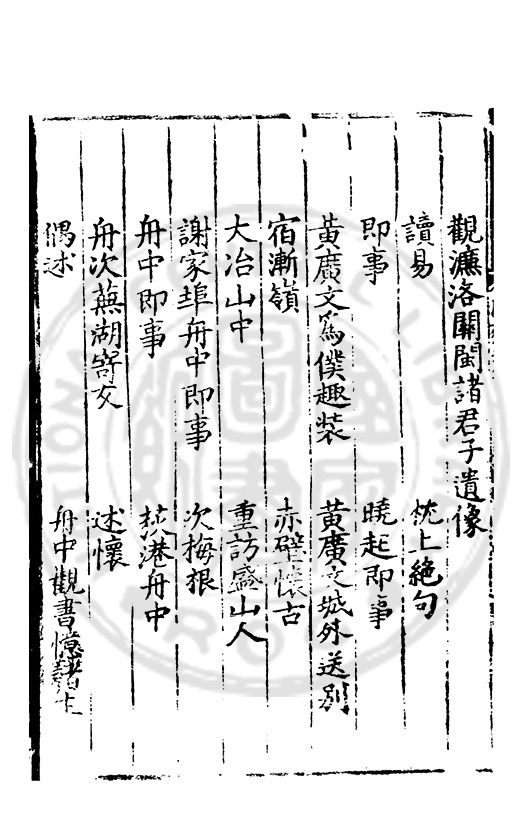 觀濂洛關閩諸君子遺像
讀易　枕上絕句
即事　曉起即事
黃廣文為僕趣裝　黃廣文城外送別
宿漸嶺　赤壁懷古
大冶山中　重訪盛山人
謝家埠舟中即事　次梅根
舟中即事　荻港舟中
舟次蕪湖寄友　述懷
偶述　舟中觀書憶諸生